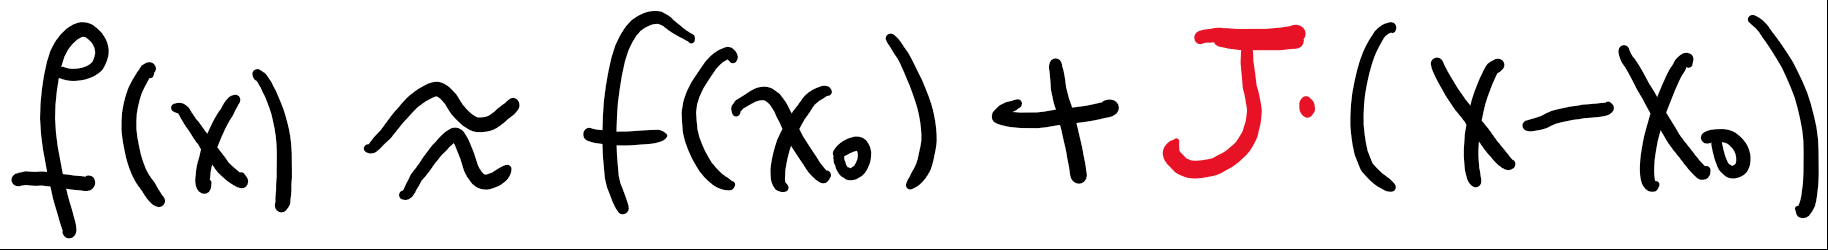 f(x) ≈ f(x₀) + J · (x - x₀)